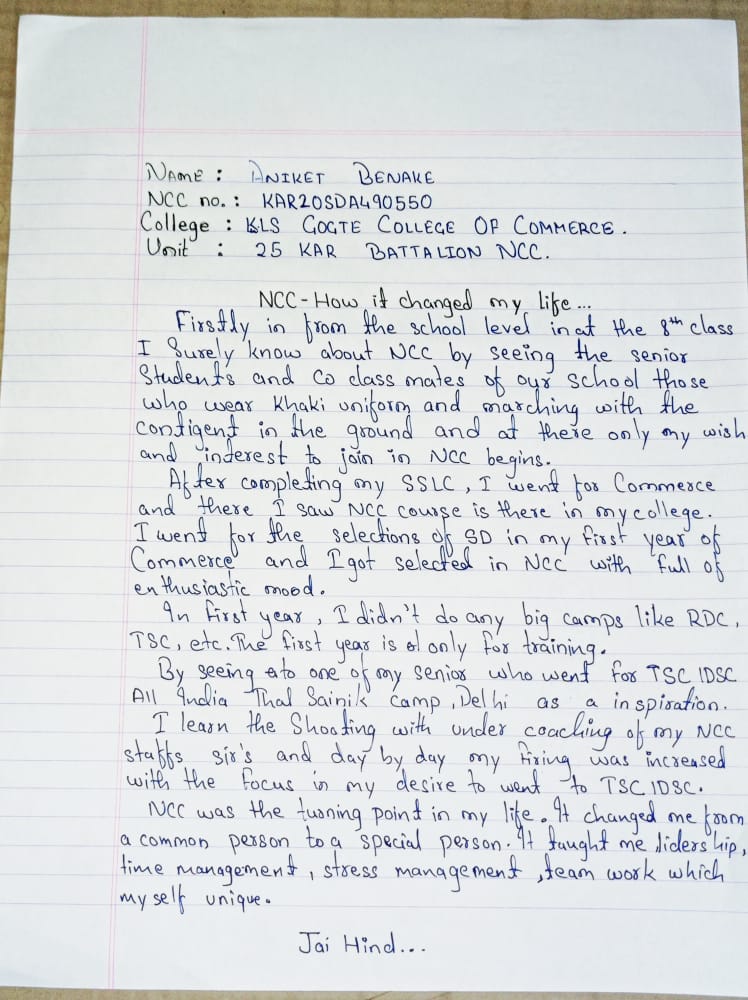 NAME : ANIKET BENAKE
NCC no. : KAR20SDA490550
College : KLS GOGTE COLLEGE OF COMMERCE .
Unit : 25 KAR BATTALION NCC.
NCC - How it changed my life...
Firstly in from the school level in at the 8th class
I Surely know about NCC by seeing the senior
Students and Co class mates of our school those
who wear Khaki uniform and marching with the
contigent in the ground and at there only my wish
and interest to join in NCC begins.
After completing my SSLC, I went for Commerce
and there I saw NCC course is there in my college.
I went for the selections of SD in my first year of
Commerce and I got selected in NCC with full of
enthusiastic mood.
In first year, I didn't do any big camps like RDC,
TSC, etc. The first year is only for training.
By seeing to one of my senior who went for TSC IDSC
All India Thal Sainik Camp, Delhi as a inspiration.
I learn the Shooting with under coaching of my NCC
staffs sir's and day by day my firing was increased
with the focus in my desire to went to TSC IDSC.
NCC was the turning point in my life. It changed me from
a common person to a special person. It taught me lidership,
time management, stress management, team work which
my self unique.
Jai Hind...